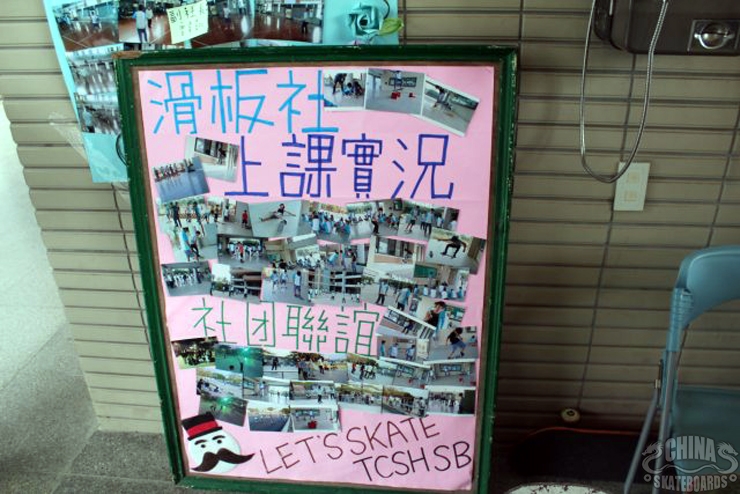 滑板社
上課實況
社团聯誼
LET'S SKATE
TCSHSB
CHINA
SKATEBOARDS